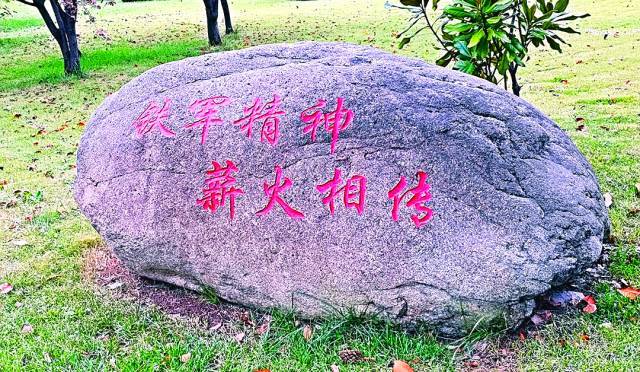 铁军精神
薪火相传